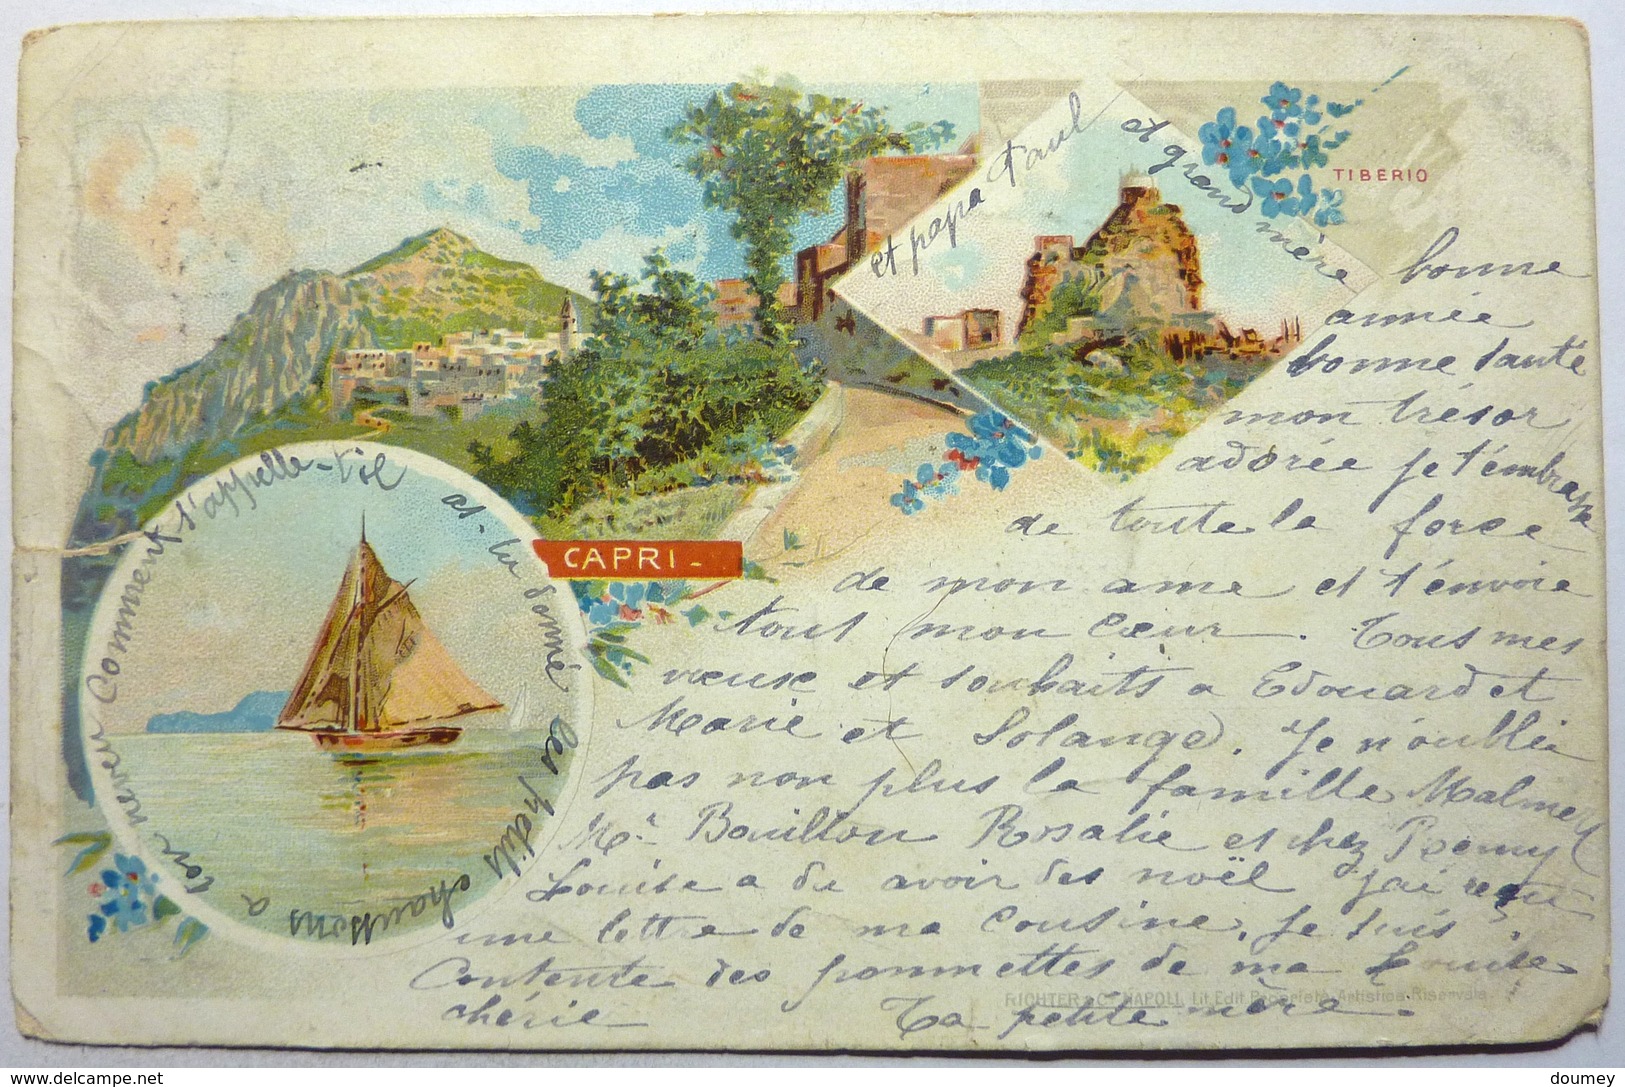 TIBERIO
CAPRI -
bonne
année
bonne santé
mon trésor
adorée je t'embrasse
de toute la force
de mon ame et t'envoie
tout mon Cœur. Tous mes
vœux et souhaits a Edouard et
Marie et Solange. Je n'oublie
pas non plus la famille
Mr Bouillon Rosalie et chez Remy
Louise a du avoir des noël j'ai reçu
une lettre de ma Cousine. Je suis
Contente des pommettes de ma Louise
chérie Ta petite mère.
et papa Paul et grand mère
as-tu donné les petits chaussons a
ton neveu Comment s'appelle-t-il
RICHTER & C° NAPOLI, Lit. Edit. Proprietà Artistica Riservata
https://www.delcampe.net
doumey